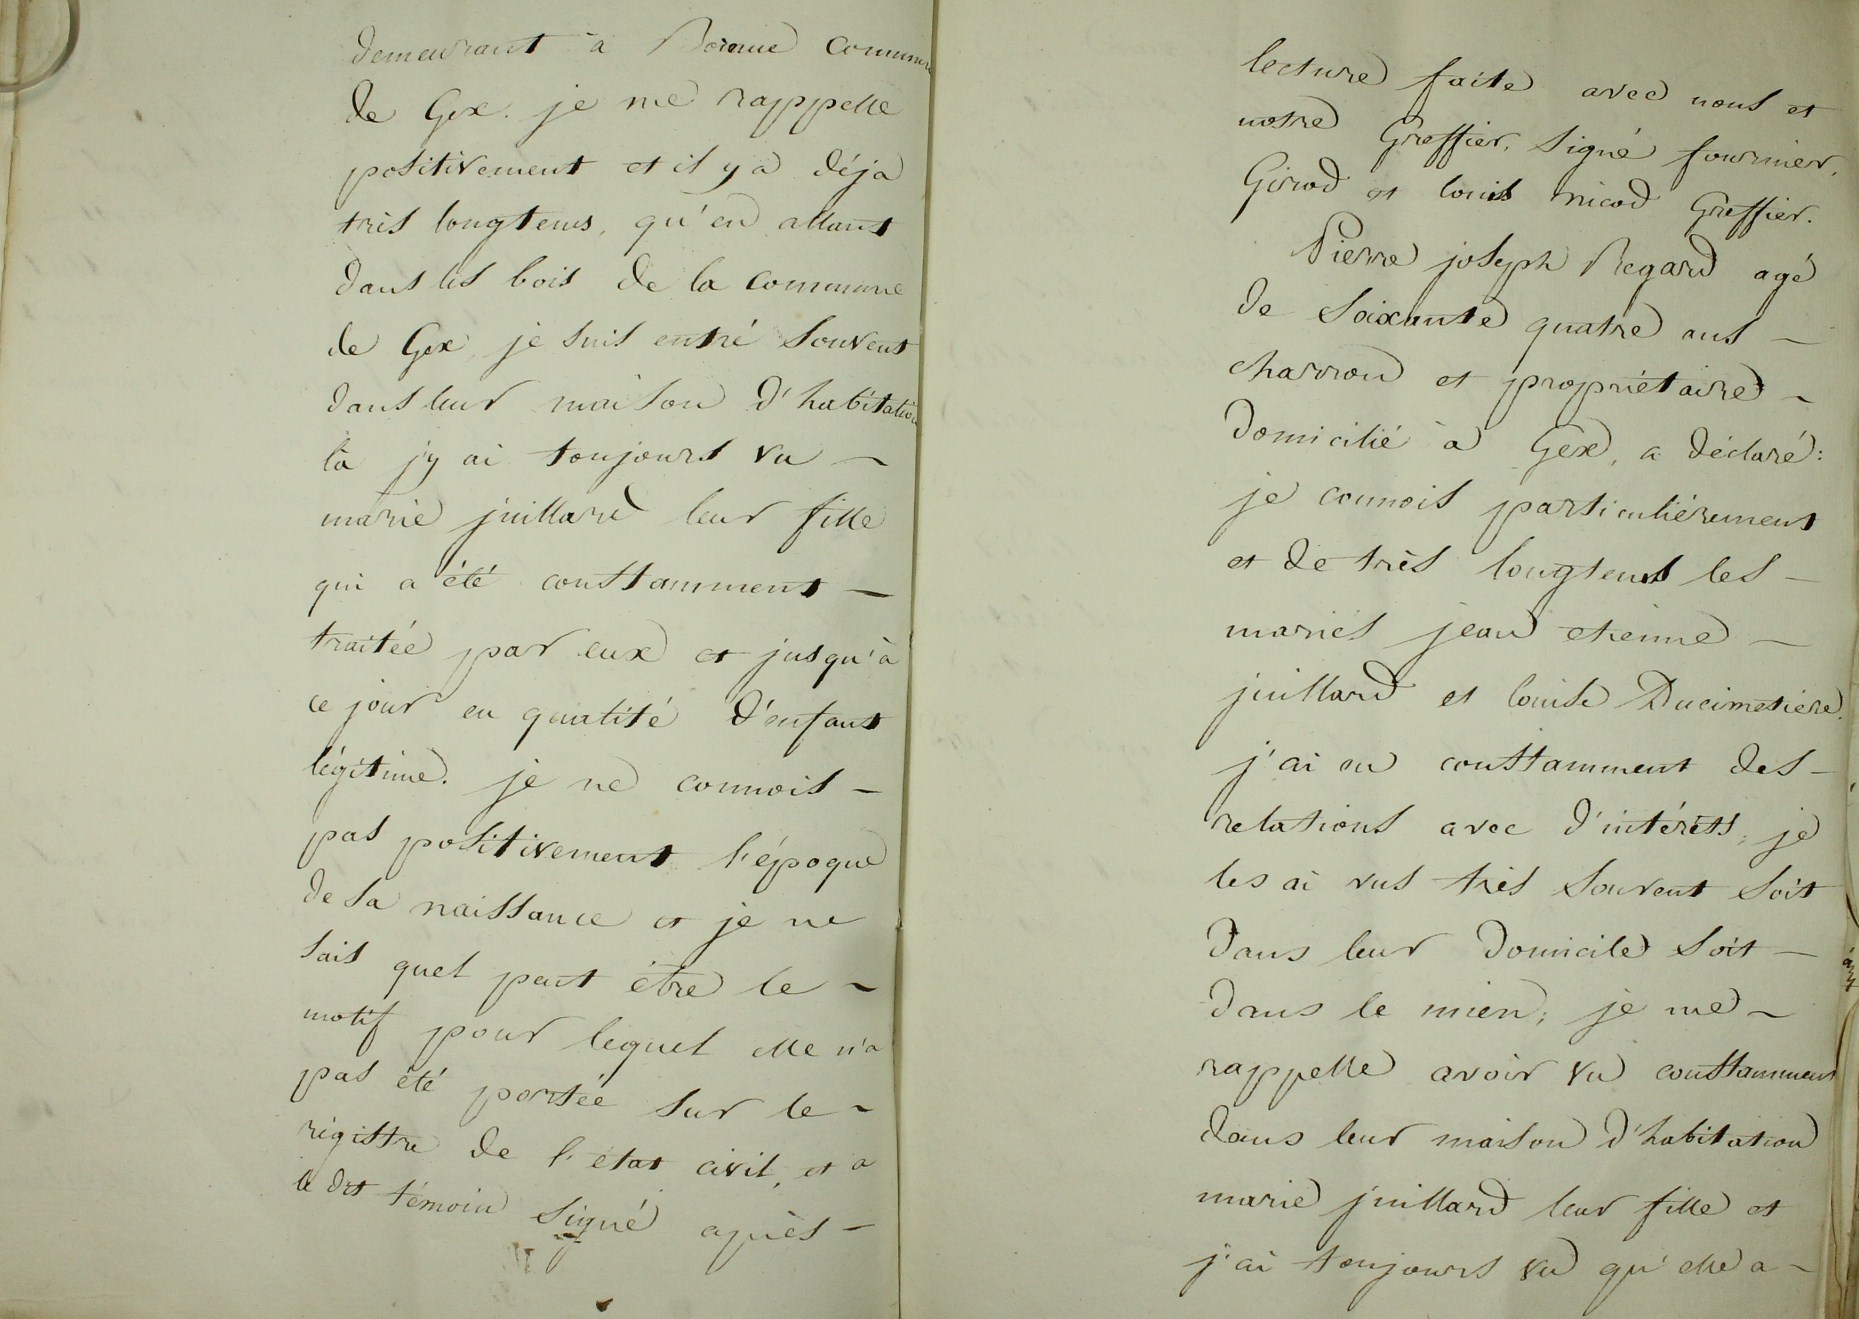 demeurant à commune
de Gex. je me rappelle
positivement et il y a déja
très longtems, qu'en allant
dans les bois de la commune
de Gex je suis entré souvent
dans leur maison d'habitation
là j'y ai toujours vu -
marie juillard leur fille
qui a été constamment -
traitée par eux et jusqu'à
ce jour en qualité d'enfant
légitime. je ne connois -
pas positivement l'époque
de sa naissance et je ne
sais quel peut être le -
motif pour lequel elle n'a
pas été portée sur le -
régistre de l'état civil, et a
le dit témoin signé après -
lecture faite avec nous et
notre Greffier. Signé fournier,
Girod et louis nicod Greffier.
Pierre joseph Regard agé
de soixante quatre ans -
charron et propriétaire -
Domicilié à Gex, a déclaré:
je connois particuliérement
et de très longtems les -
mariés jean etienne -
juillard et louise Ducimetière.
j'ai eu constamment des -
relations avec d'intérêts, je
les ai vus très souvent soit
dans leur Domicile soit -
dans le mien; je me -
rappelle avoir vu constamment
dans leur maison d'habitation
marie juillard leur fille et
j'ai toujours vu qu'elle a -